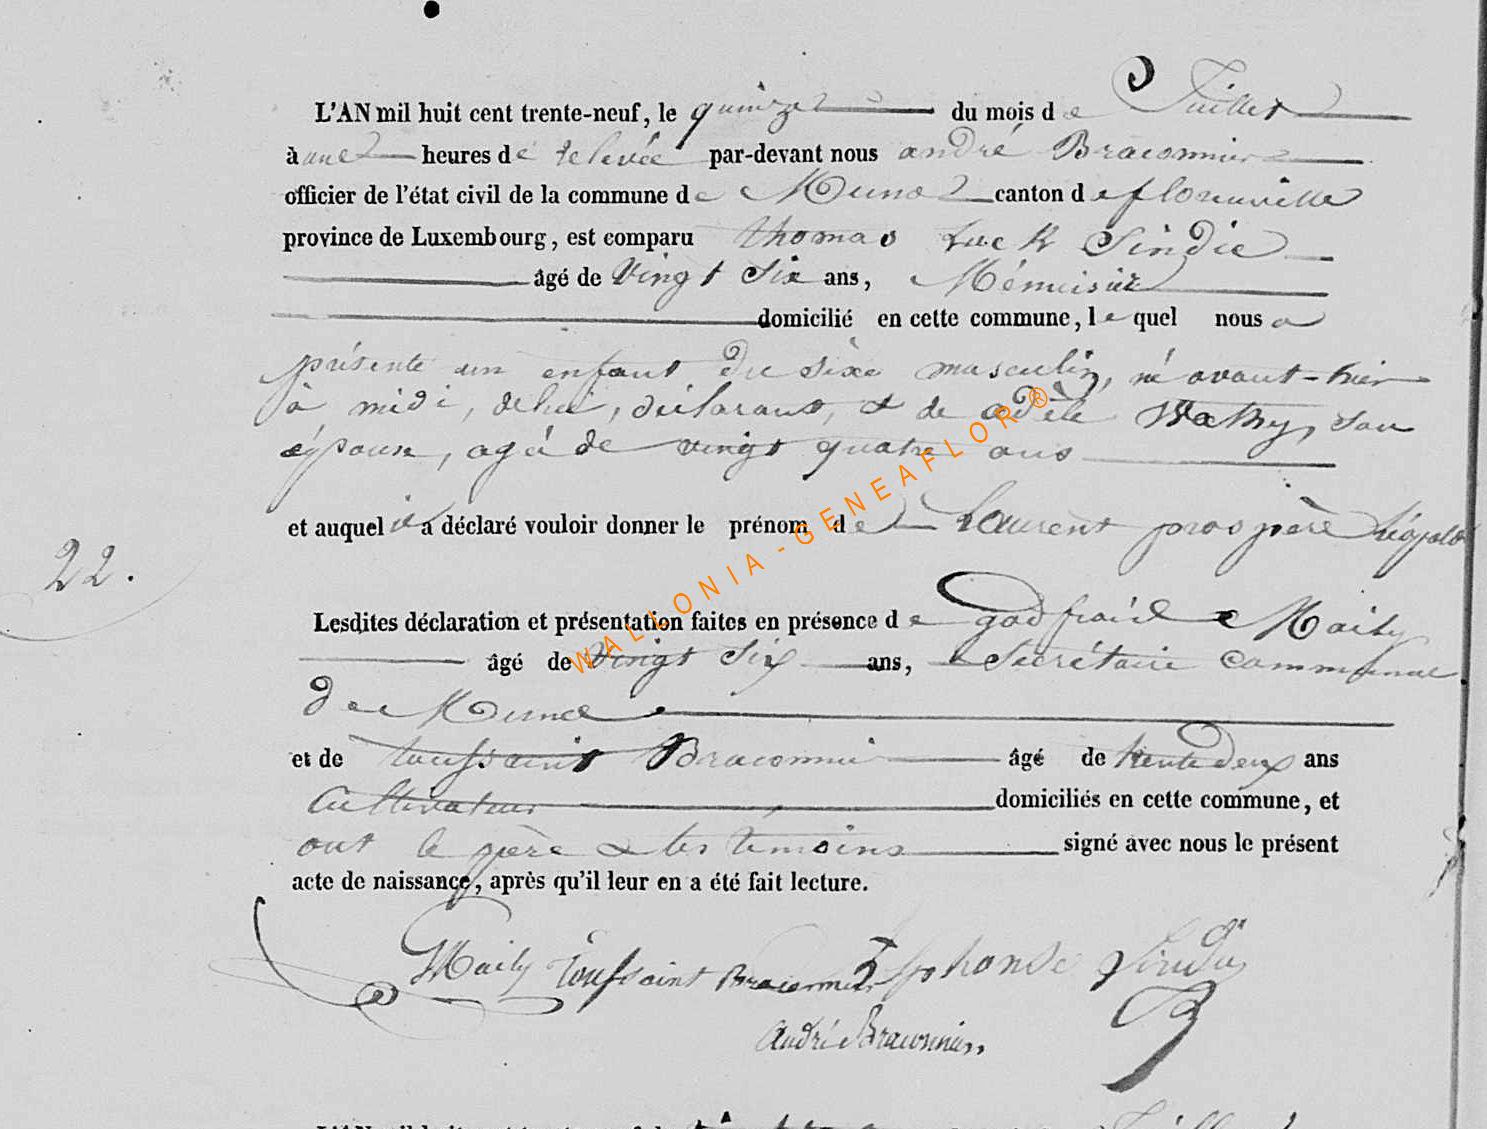 L'AN mil huit cent trente-neuf, le quinze du mois de Juillet
à une heures de relevée par-devant nous andré Braconnier
officier de l'état civil de la commune de Muno canton de florenville
province de Luxembourg, est comparu thomas Sindic
âgé de Vingt Six ans, Ménuisier
domicilié en cette commune, lequel nous a
présenté un enfant du sèxe masculin, né avant-hier
à midi, de lui, déclarant, & de adèle son
épouse, agée de vingt quatre ans
et auquel il a déclaré vouloir donner le prénom de Laurent prospère Léopold
22.
Lesdites déclaration et présentation faites en présence de godfroid Maily
âgé de Vingt Six ans, Secrétaire Communal
de Muno
et de toussaint Braconnier âgé de trente deux ans
Cultivateur domiciliés en cette commune, et
ont le père & les témoins signé avec nous le présent
acte de naissance, après qu'il leur en a été fait lecture.
GMaily Toussaint Braconnier Sindic
André Braconnier
WALLONIA-GENEAFLOR®